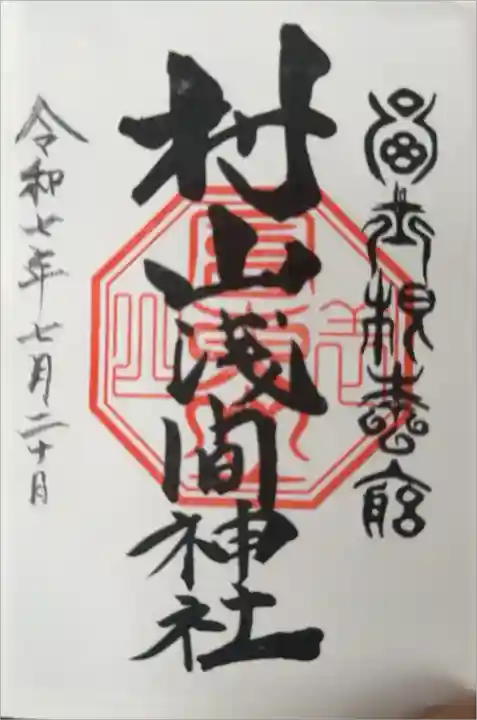 冨士根本宮
村山浅間神社
令和七年七月二十日